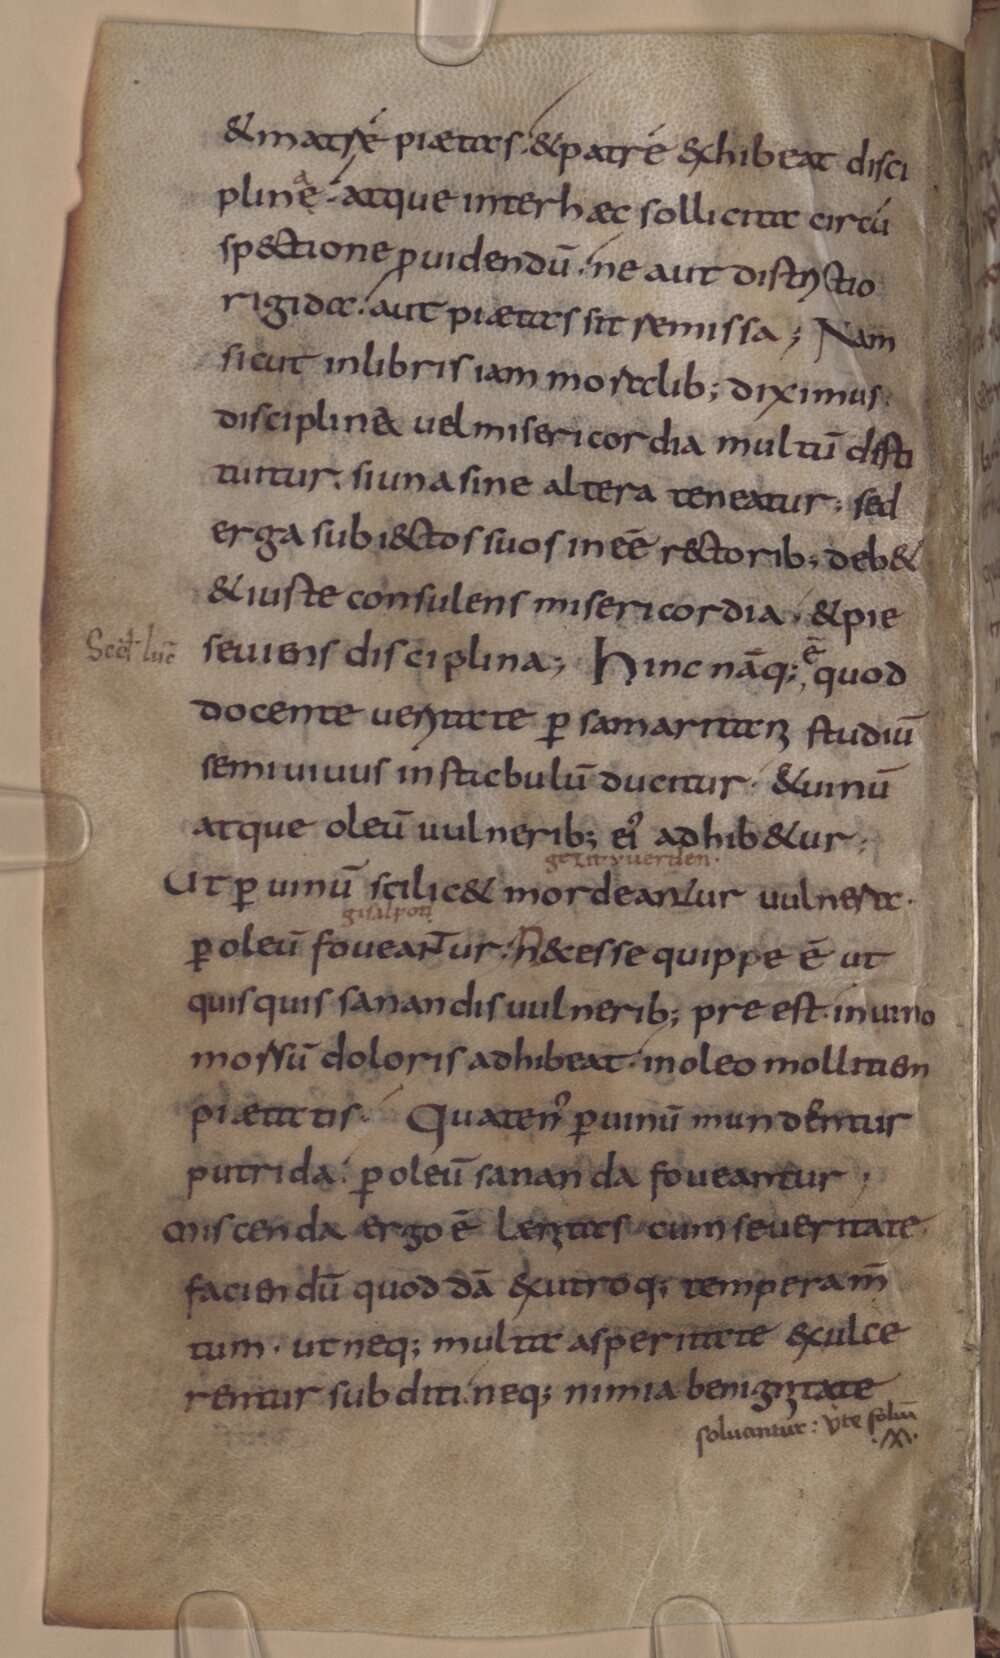 & matrẽ piætas · & patrẽ exhibeat disci
plinę̃ · atque inter hæc sollicita circũ
spectione ꝓuidendũ · ne aut districtio
rigida · aut piætas sit remissa ; Nam
sicut in libris iam moralib; diximus ·
disciplina & uel misericordia multũ desti
tuitur · si una sine altera teneatur · sed
erga subiectos suos inẽẽ rectorib; deb&
& iuste consulens misericordia · & pie
seuiens disciplina ; Hinc nãq; ẽ quod
docente ueritate ꝑ samaritani studiũ
semiuiuus in stabulũ ducitur · & uinũ
atque oleũ uulnerib; ei' adhib&ur ;
gezit vuerden ·
Ut ꝑ uinũ scilic& mordeantur uulnera ·
ꝑ oleũ foueantur · N&cesse quippe ẽ ut
quisquis sanandis uulnerib; pre est · in uino
morsũ doloris adhibeat · in oleo mollitiem
piætatis · Quaten' ꝑ uinũ mundentur
putrida · ꝑ oleũ sananda foueantur ;
Miscenda ergo ẽ lænitas cum seueritate ·
faciendũ quoddã ex utroq; temperam̃
tum · ut neq; multa asperitate exulce
rentur subditi · neq; nimia benignitate
soluantur :